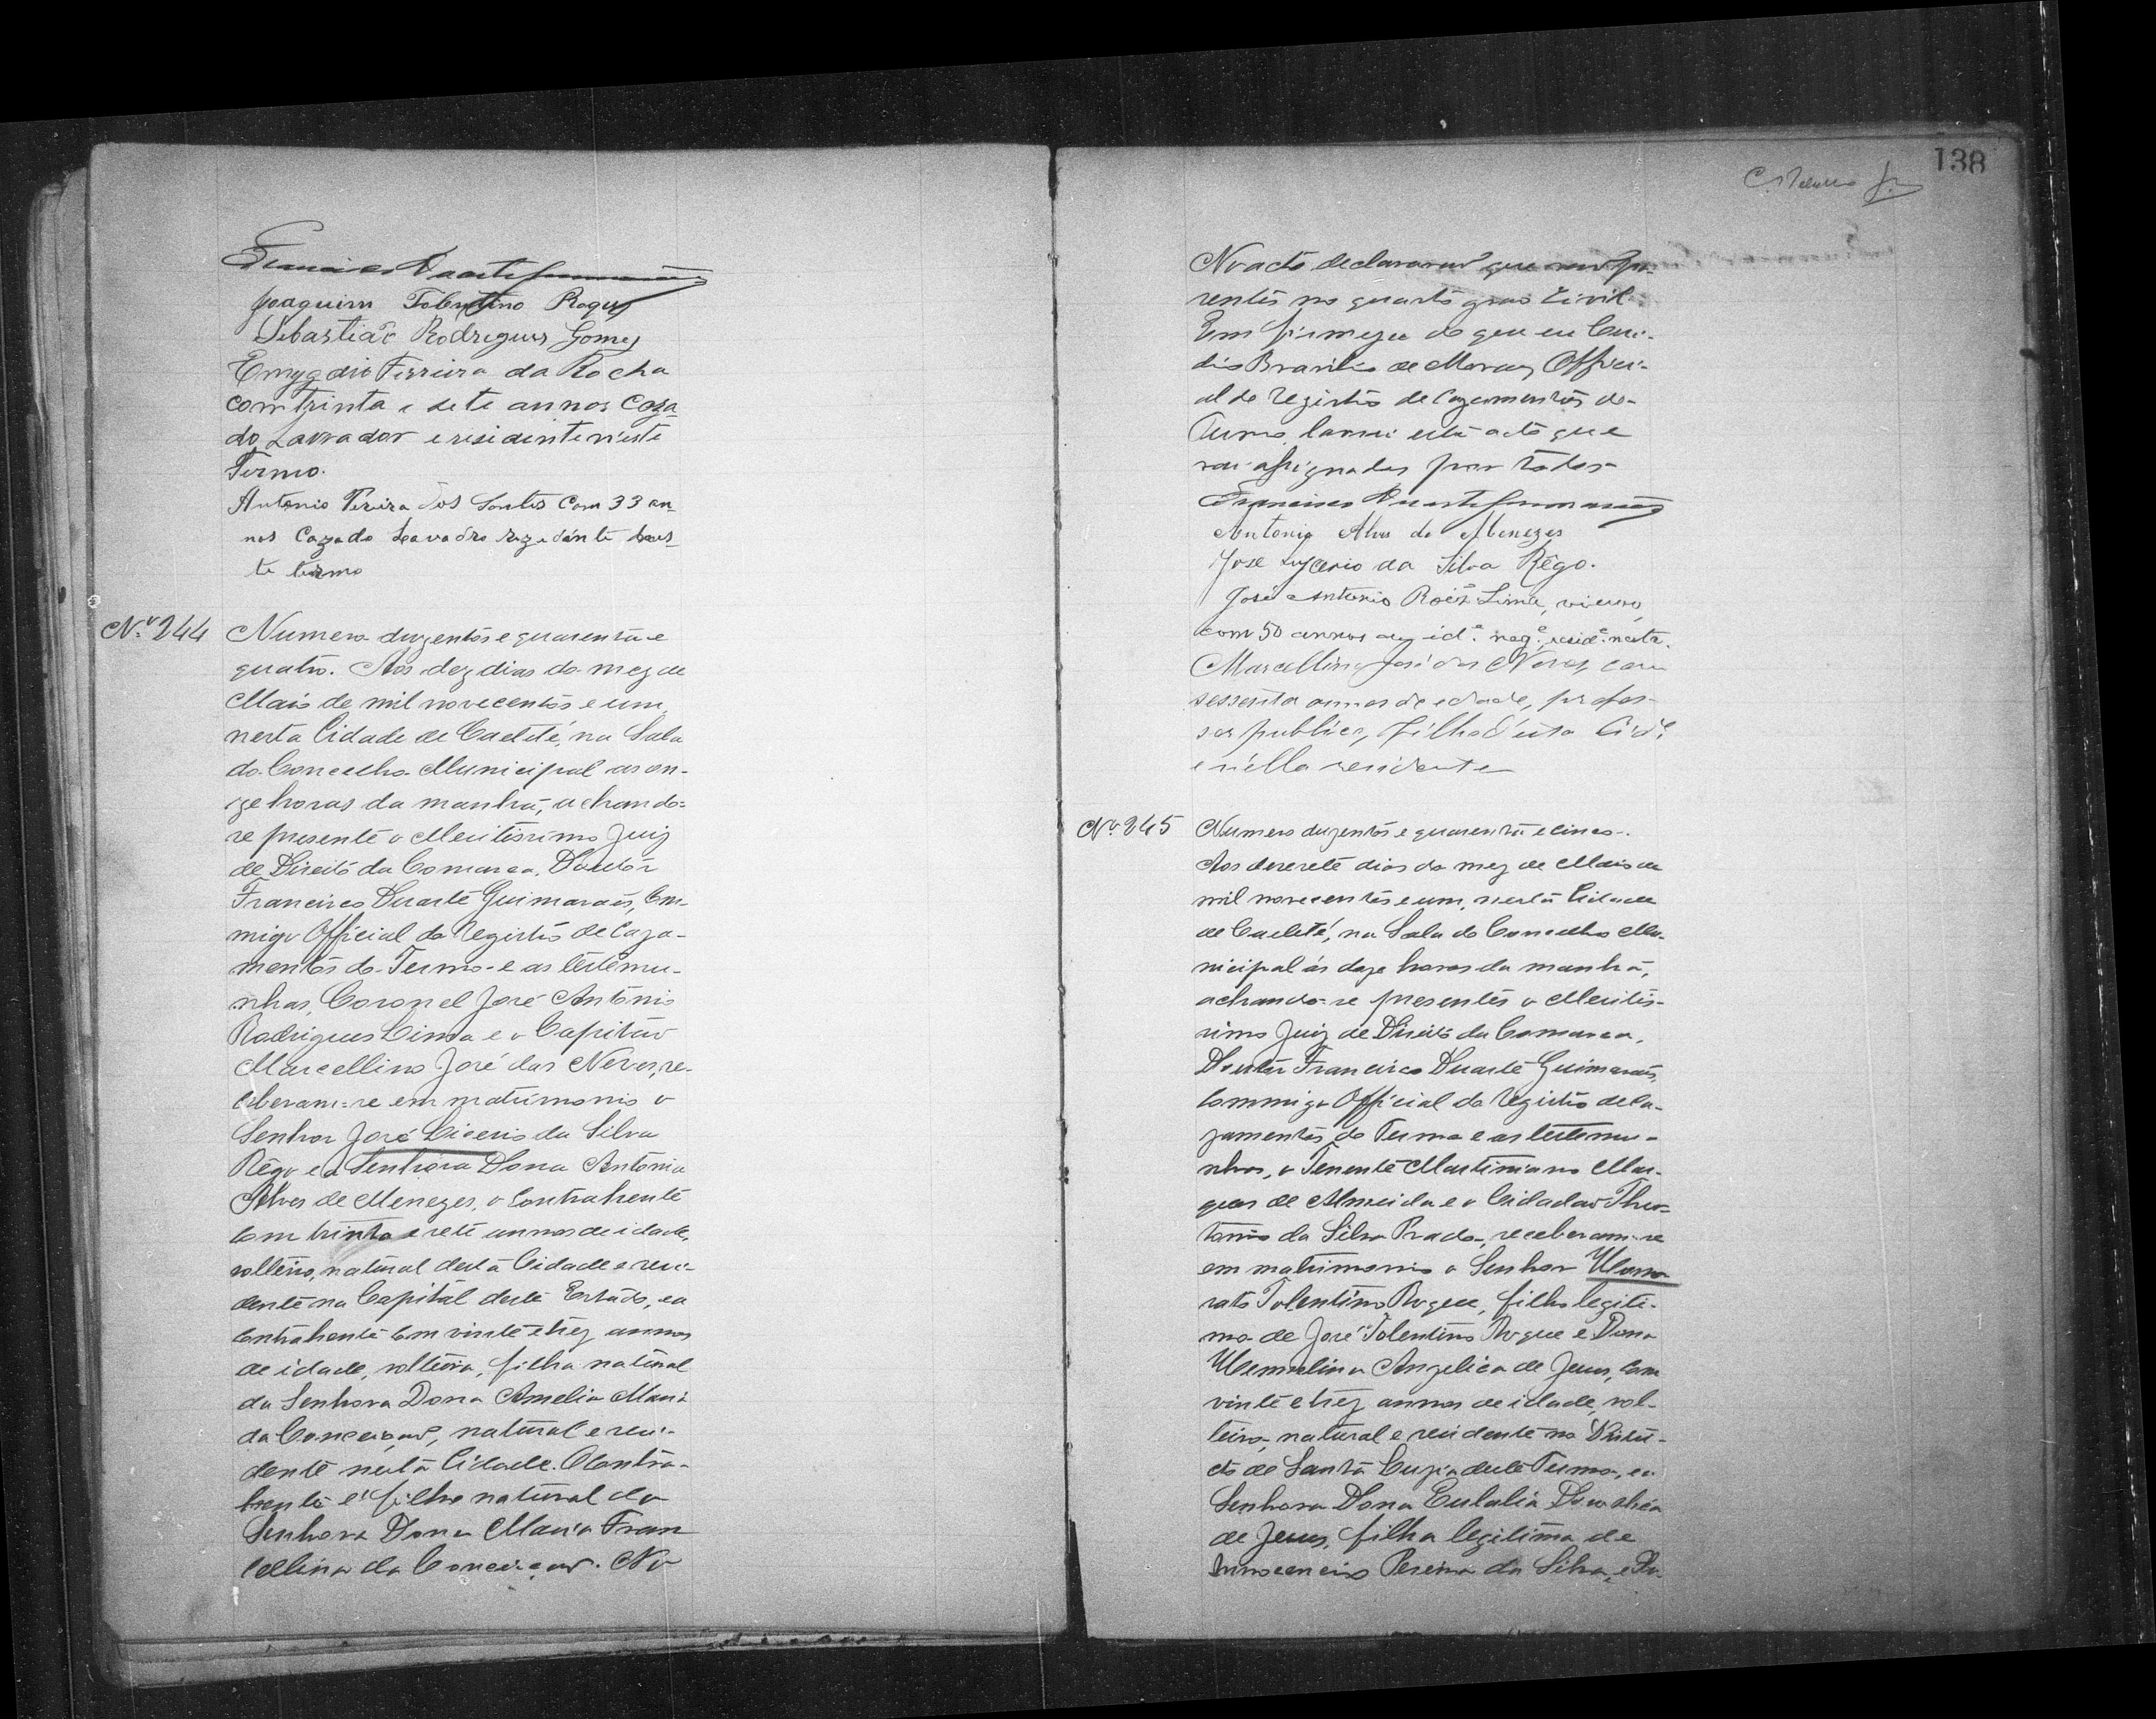 Francisco Duarte Guimarães
Joaquim Tolentino Roque
Sebastião Rodrigues Gomes
Emygdio Ferreira da Rocha
com trinta e sete annos caza
do Lavrador e residinte n'este
Termo.
Antonio Pereira dos Santos Com 33 an_
nos Cazado Lavadro rezedente
te termo
Nº 244
Numero duzentos e quarenta e
quatro. Aos dez dias do mez de
Maio de mil novecentos e um,
nesta Cidade de Caeteté, na Sala
do Concelho Municipal as on-
ze horas da manhã, achando-
se presente o Meritissimo Juiz
de Direito da Comarca, Doutor
Francisco Duarte Guimarães, Com-
migo Official do Registro de Caza-
mentos do Termo e as testemu-
nhas, Coronel José Antonio
Rodrigues Lima e o Capitão
Marcellino José das Neves, re-
ceberam-se em matrimonio o
Senhor José Licerio da Silva
Rêgo e a Senhora Dona Antonia
Alves de Menezes, o Contrahente
com trinta e sete annos de idade,
solteiro, natural desta Cidade e resi-
dente na Capital deste Estado, e a
Contrahente com vinte e trez annos
de idade, solteira, filha natural
da Senhora Dona Amelia Maria
da Conceição, natural e resi-
dente nesta Cidade. O Contra-
hente é filho natural da
Senhora Dona Maria Fran
cellina da Conceição. No
138
No acto declararam que são pa-
rentes no quarto grao Civil.
Em firmeza do que eu Can-
dio Brasilio de Moraes Offici-
al do Registro de Cazamentos do
Termo, lancei este acto que
vai assignado por todos
Francisco Duarte Guimarães
Antonia Alves de Menezes
José Lycerio da Silva Rêgo.
José Antonio Roiz Lima, viuvo,
com 50 annos de id.e neg.e resid.e nesta.
Marcellino José das Neves, com
sessenta annos de edade, profes-
sor publico, filho d'esta Cid.e
e n'ella residente
Nº 245
Numero duzentos e quarenta e cinco.
Aos desesete dias do mez de Maio de
mil novecentos e um, nesta Cidade
de Caeteté, na Sala do Concelho Mu-
nicipal ás doze horas da manhã,
achando-se presentes o Meritis-
simo Juiz de Direito da Comarca,
Doutor Francisco Duarte Guimarães,
Commigo Official do Registro de Ca-
zamentos do Termo e as testemu-
nhas, o Tenente Martiniano Mar-
ques de Almeida e o Cidadão Theo-
tonio da Silva Prado, receberam-se
em matrimonio o Senhor Hono
rato Tolentino Roque, filho legiti-
mo de José Tolentino Roque e Dona
Hemelina Angelica de Jesus, com
vinte e trez annos de idade, sol-
teiro, natural e residente no Distri-
cto de Santa Luzia deste Termo, e a
Senhora Dona Eulalia Dorothéa
de Jesus, filha legitima de
Innocencio Pereira da Silva e Do-